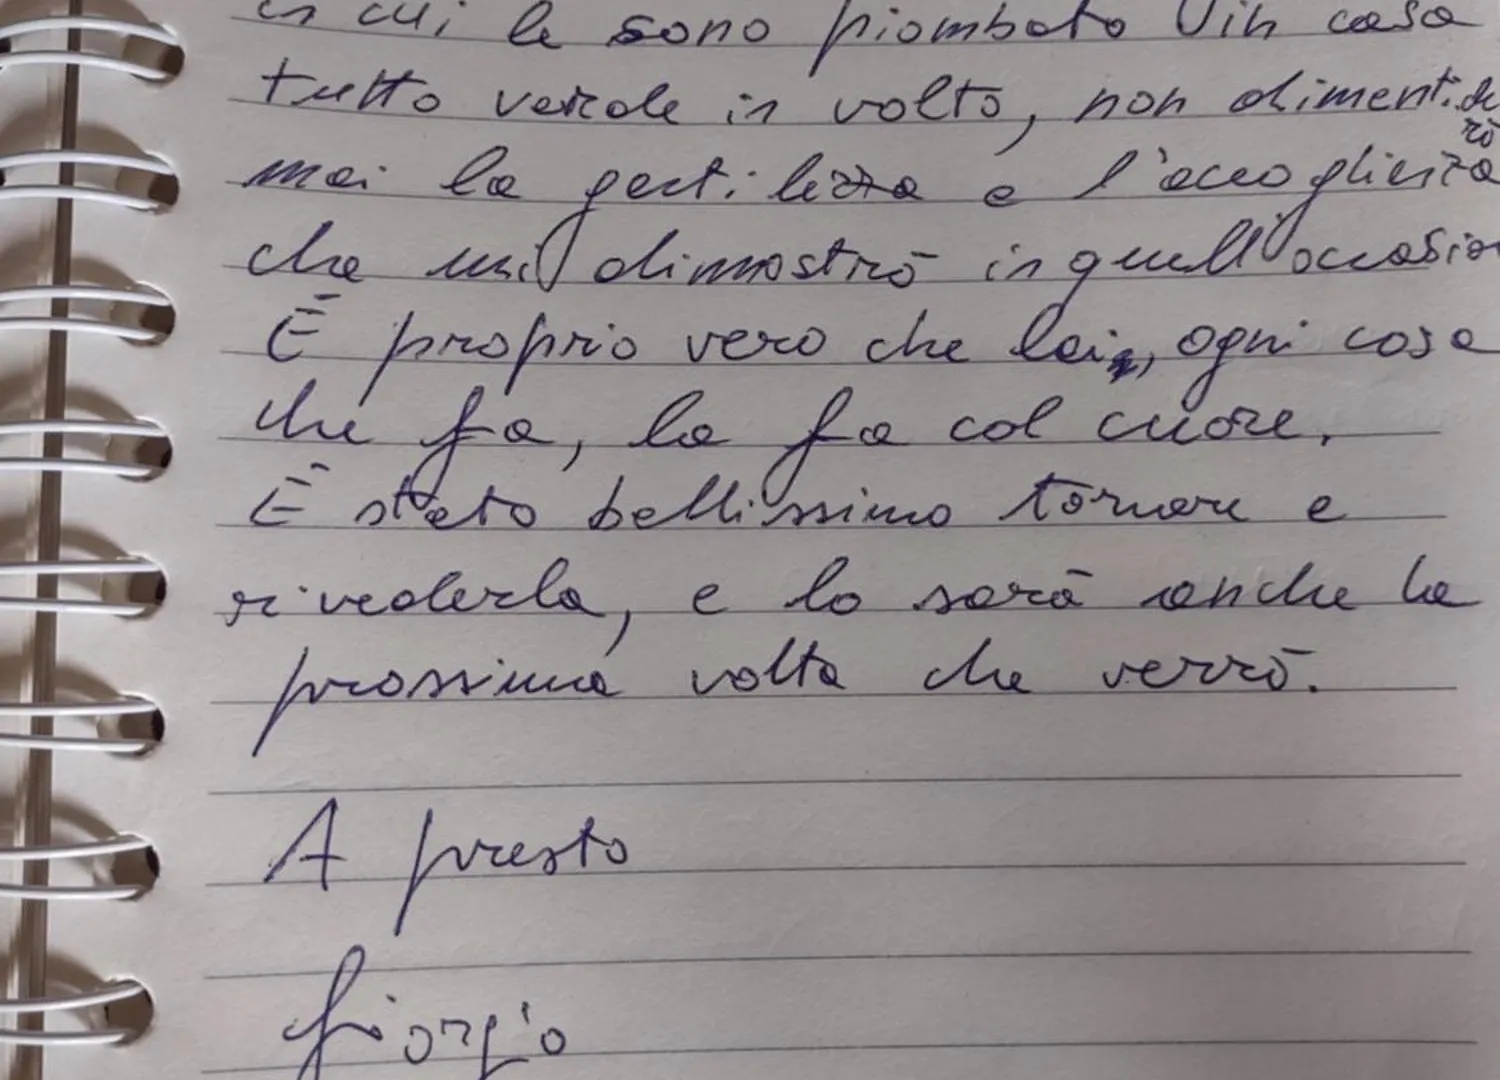 in cui le sono piombato in casa
tutto verde in volto, non dimenticherò
mai la gentilezza e l'accoglienza
che mi dimostrò in quell'occasion
È proprio vero che lei, ogni cosa
che fa, la fa col cuore.
È stato bellissimo tornare e
rivederla, e lo sarà anche la
prossima volta che verrò.
A presto
Giorgio